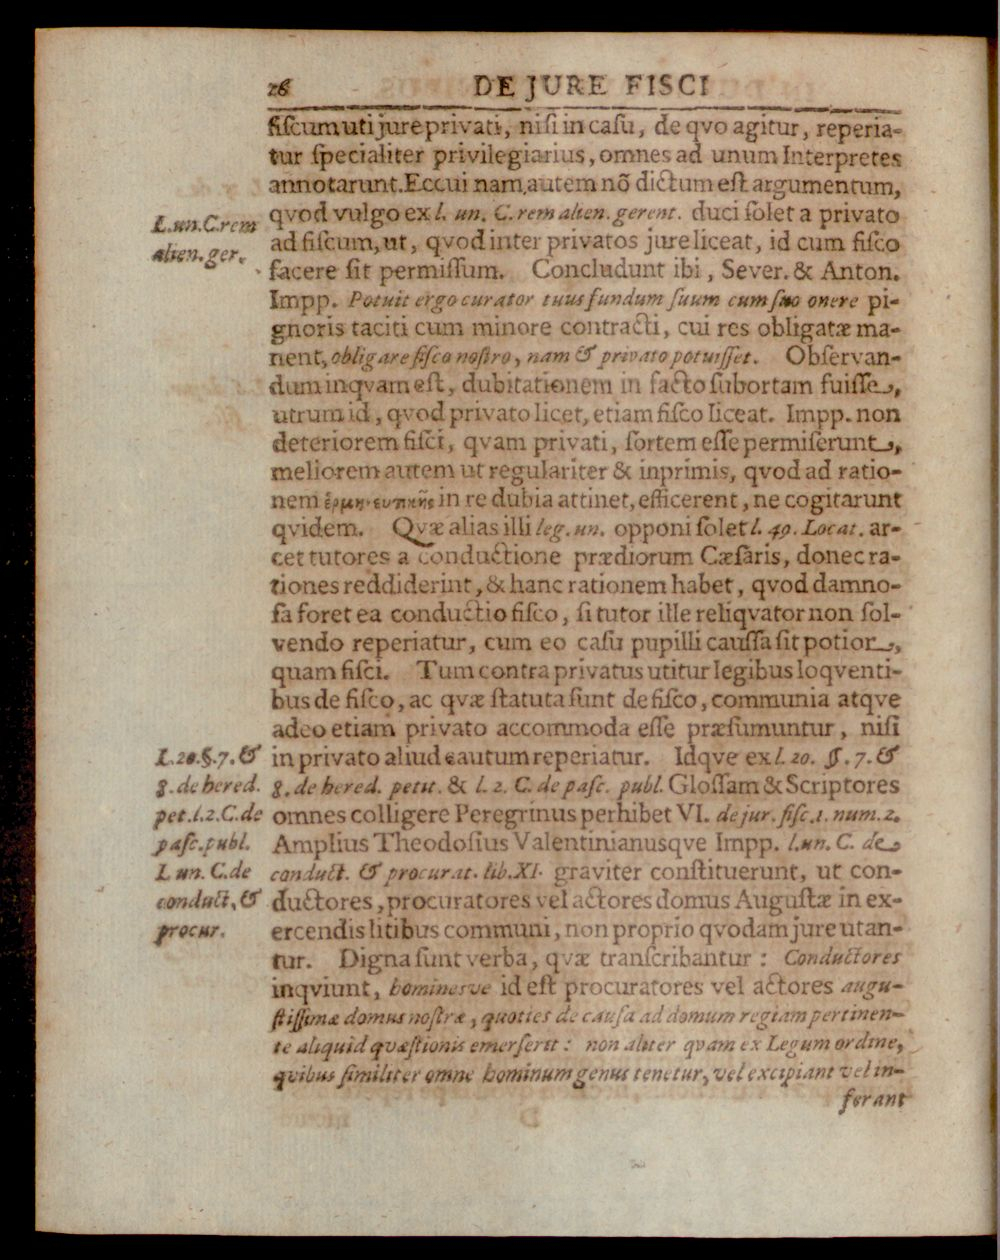 26 DE JURE FISCI
fiscum uti jure privati, nisi in casu, de qvo agitur, reperia-
tur specialiter privilegiarius, omnes ad unum Interpretes
annotarunt. Ec cui nam, autem nõ dictum est argumentum,
qvod vulgo ex l. un. C. rem alien. gerent. duci solet a privato
ad fiscum, ut, qvod inter privatos jure liceat, id cum fisco
facere sit permissum. Concludunt ibi, Sever. & Anton.
Impp. Potuit ergo curator tuus fundum suum cum suo onere pi-
gnoris taciti cum minore contracti, cui res obligatæ ma-
nent, obligare fisco nostro, nam & privato potuisset. Observan-
dum inqvam est, dubitationem in facto subortam fuisse,
utrum id, qvod privato licet, etiam fisco liceat. Impp. non
deteriorem fisci, qvam privati, sortem esse permiserunt,
meliorem autem ut regulariter & inprimis, qvod ad ratio-
nem in re dubia attinet, efficerent, ne cogitarunt
qvidem. Qvæ alias illi leg. un. opponi solet l. 49. Locat. ar-
cet tutores a conductione prædiorum Cæsaris, donec ra-
tiones reddiderint, & hanc rationem habet, qvod damno-
sa foret ea conductio fisco, si tutor ille reliqvator non sol-
vendo reperiatur, cum eo casu pupilli caussa sit potior,
quam fisci. Tum contra privatus utitur legibus loqventi-
bus de fisco, ac qvæ statuta sunt de fisco, communia atqve
adeo etiam privato accommoda esse præsumuntur, nisi
in privato aliud cautum reperiatur. Idqve ex l. 20. §. 7. &
8. de hered. petit. & l. 2. C. de pasc. publ. Glossam & Scriptores
omnes colligere Peregrinus perhibet VI. de jur. fisc. 1. num. 2.
Amplius Theodosius Valentinianusqve Impp. l. un. C. de
conduct. & procurat. lib. XI. graviter constituerunt, ut con-
ductores, procuratores vel actores domus Augustæ in ex-
ercendis litibus communi, non proprio qvodam jure utan-
tur. Digna sunt verba, qvæ transcribantur: Conductores
inqviunt, hominesve id est procuratores vel actores augu-
stissimæ domus nostræ, quoties de causa ad domum regiam pertinen-
te aliquid qvæstionis emerserit: non aliter qvam ex Legum ordine,
qvibus similiter omne hominum genus tenetur, vel excipiant vel in-
ferant
L. un. C. rem
alien. ger.
L. 20. §. 7. &
8. de hered.
pet. l. 2. C. de
pasc. publ.
L un. C. de
conduct, &
procur.